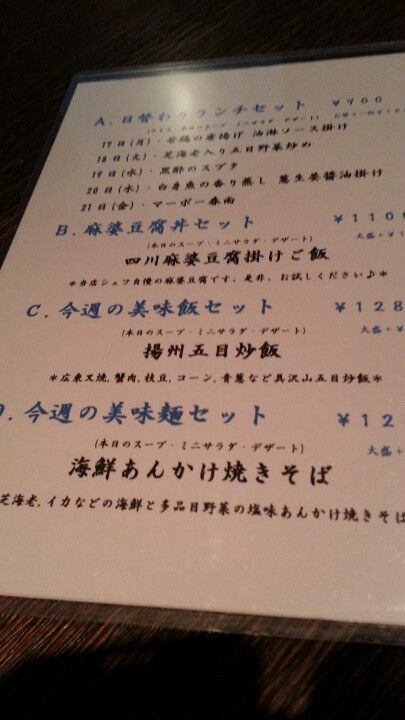 A. 日替わりランチセット ¥900
17日(月)・若鶏の唐揚げ 油淋ソース掛け
18日(火)・芝海老入り五目野菜炒め
19日(水)・黒酢のスブタ
20日(木)・白身魚の香り蒸し 葱生姜醤油掛け
21日(金)・マーボー春雨
B. 麻婆豆腐丼セット ¥110
(本日のスープ・ミニサラダ・デザート) 大盛+¥
四川麻婆豆腐掛けご飯
*当店シェフ自慢の麻婆豆腐です。是非、お試しください♪*
C. 今週の美味飯セット ¥128
(本日のスープ・ミニサラダ・デザート) 大盛+¥
揚州五目炒飯
*広東叉焼, 蟹肉, 枝豆, コーン, 青葱など具沢山五目炒飯*
D. 今週の美味麺セット ¥12
(本日のスープ・ミニサラダ・デザート) 大盛+
海鮮あんかけ焼きそば
芝海老, イカなどの海鮮と多品目野菜の塩味あんかけ焼きそば